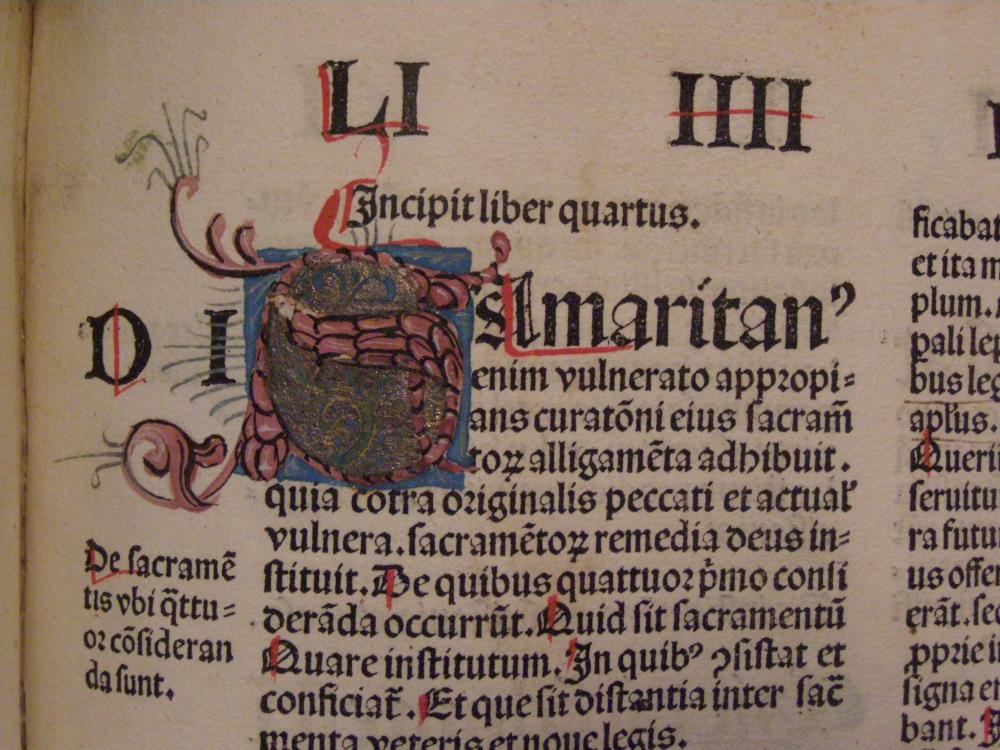 LI IIII
Incipit liber quartus.
D I
SAmaritanꝰ
enim vulnerato appropi⸗
ans curatõni eius sacram̃
toꝝ alligamẽta adhibuit.
quia cõtra originalis peccati et actual̕
vulnera. sacramẽtoꝝ remedia deus in⸗
stituit. De quibus quattuor p̃mo consi
derãda occurrũt. Quid sit sacramentũ
Quare institutum. In quibꝰ ꝯsistat et
conficiat̃. Et que sit distantia inter sac̃
menta veteris et noue legis.
De sacramẽ
tis vbi q̃ttu⸗
or cõsideran
da sunt.
ficabat
et ita m
plum.
pali le
bus leg
apl̃us.
Queri
seruitu
ra futu
us offe
erãt. sec
ꝓprie i
signa et
bant.